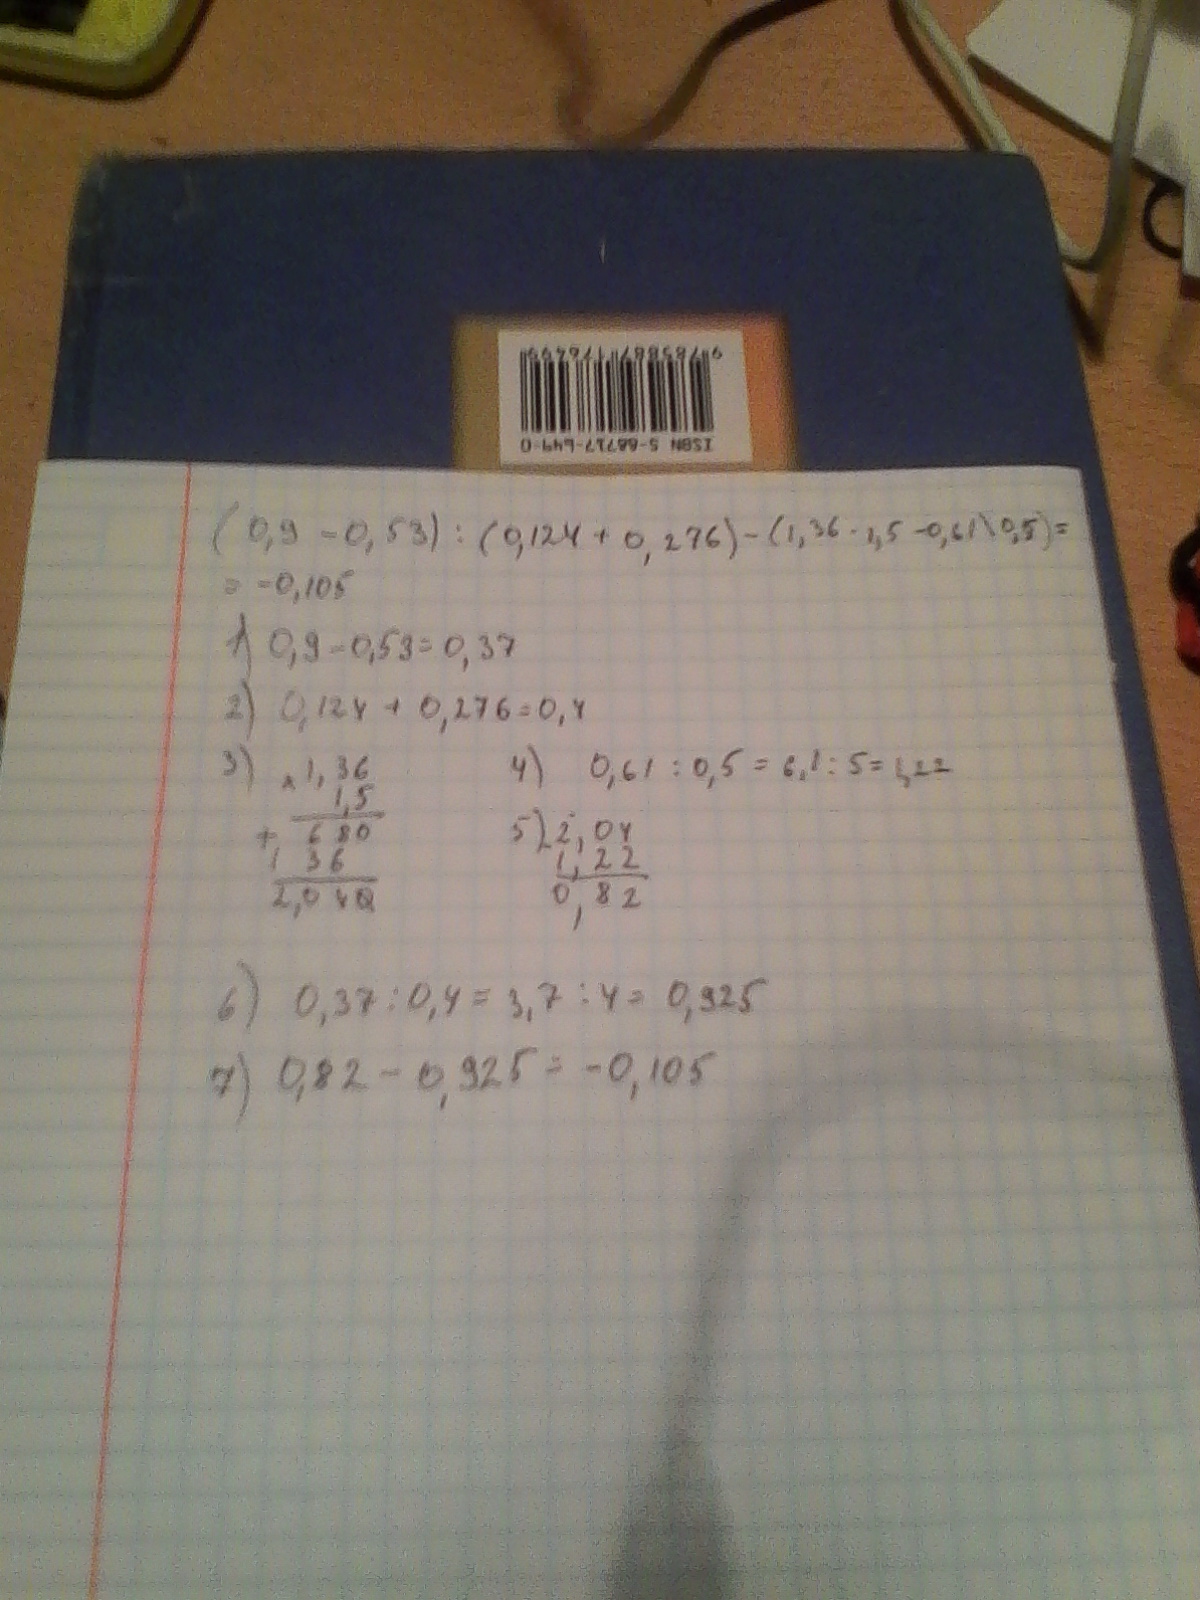 9 785887 176499
ISBN 5-88717-649-0
(0,9 - 0,53) : (0,124 + 0,276) - (1,36 · 1,5 - 0,61 \ 0,5) =
= -0,105
1) 0,9 - 0,53 = 0,37
2) 0,124 + 0,276 = 0,4
3) × 1,36
1,5
+ 680
136
2,040
4) 0,61 : 0,5 = 6,1 : 5 = 1,22
5) 2,04
1,22
0,82
6) 0,37 : 0,4 = 3,7 : 4 = 0,925
7) 0,82 - 0,925 = -0,105